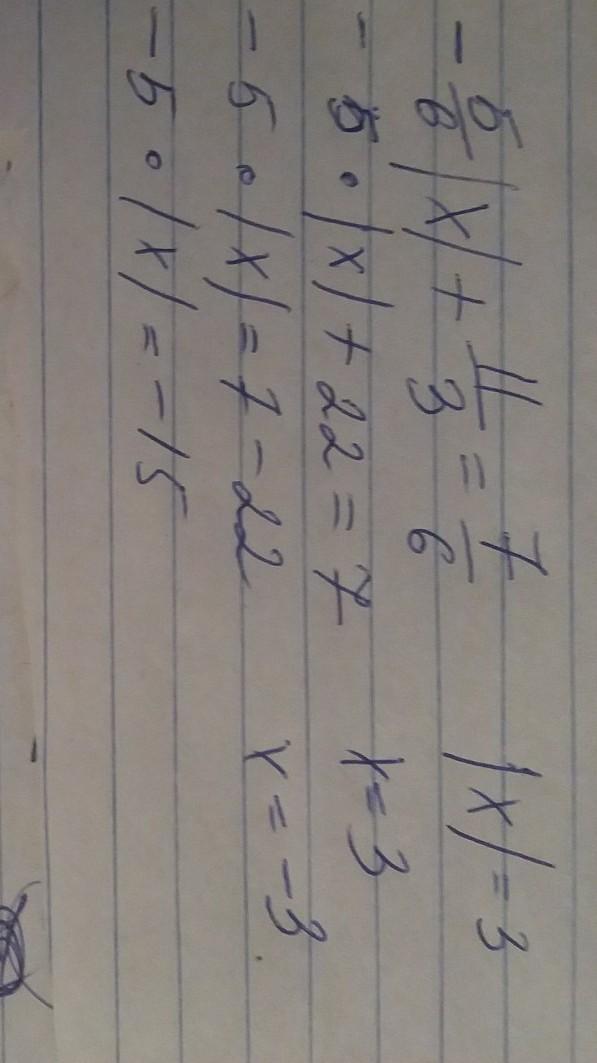 -5/6 |x| + 11/3 = 7/6
-5 · |x| + 22 = 7
-5 · |x| = 7 - 22
-5 · |x| = -15
|x| = 3
x = 3
x = -3